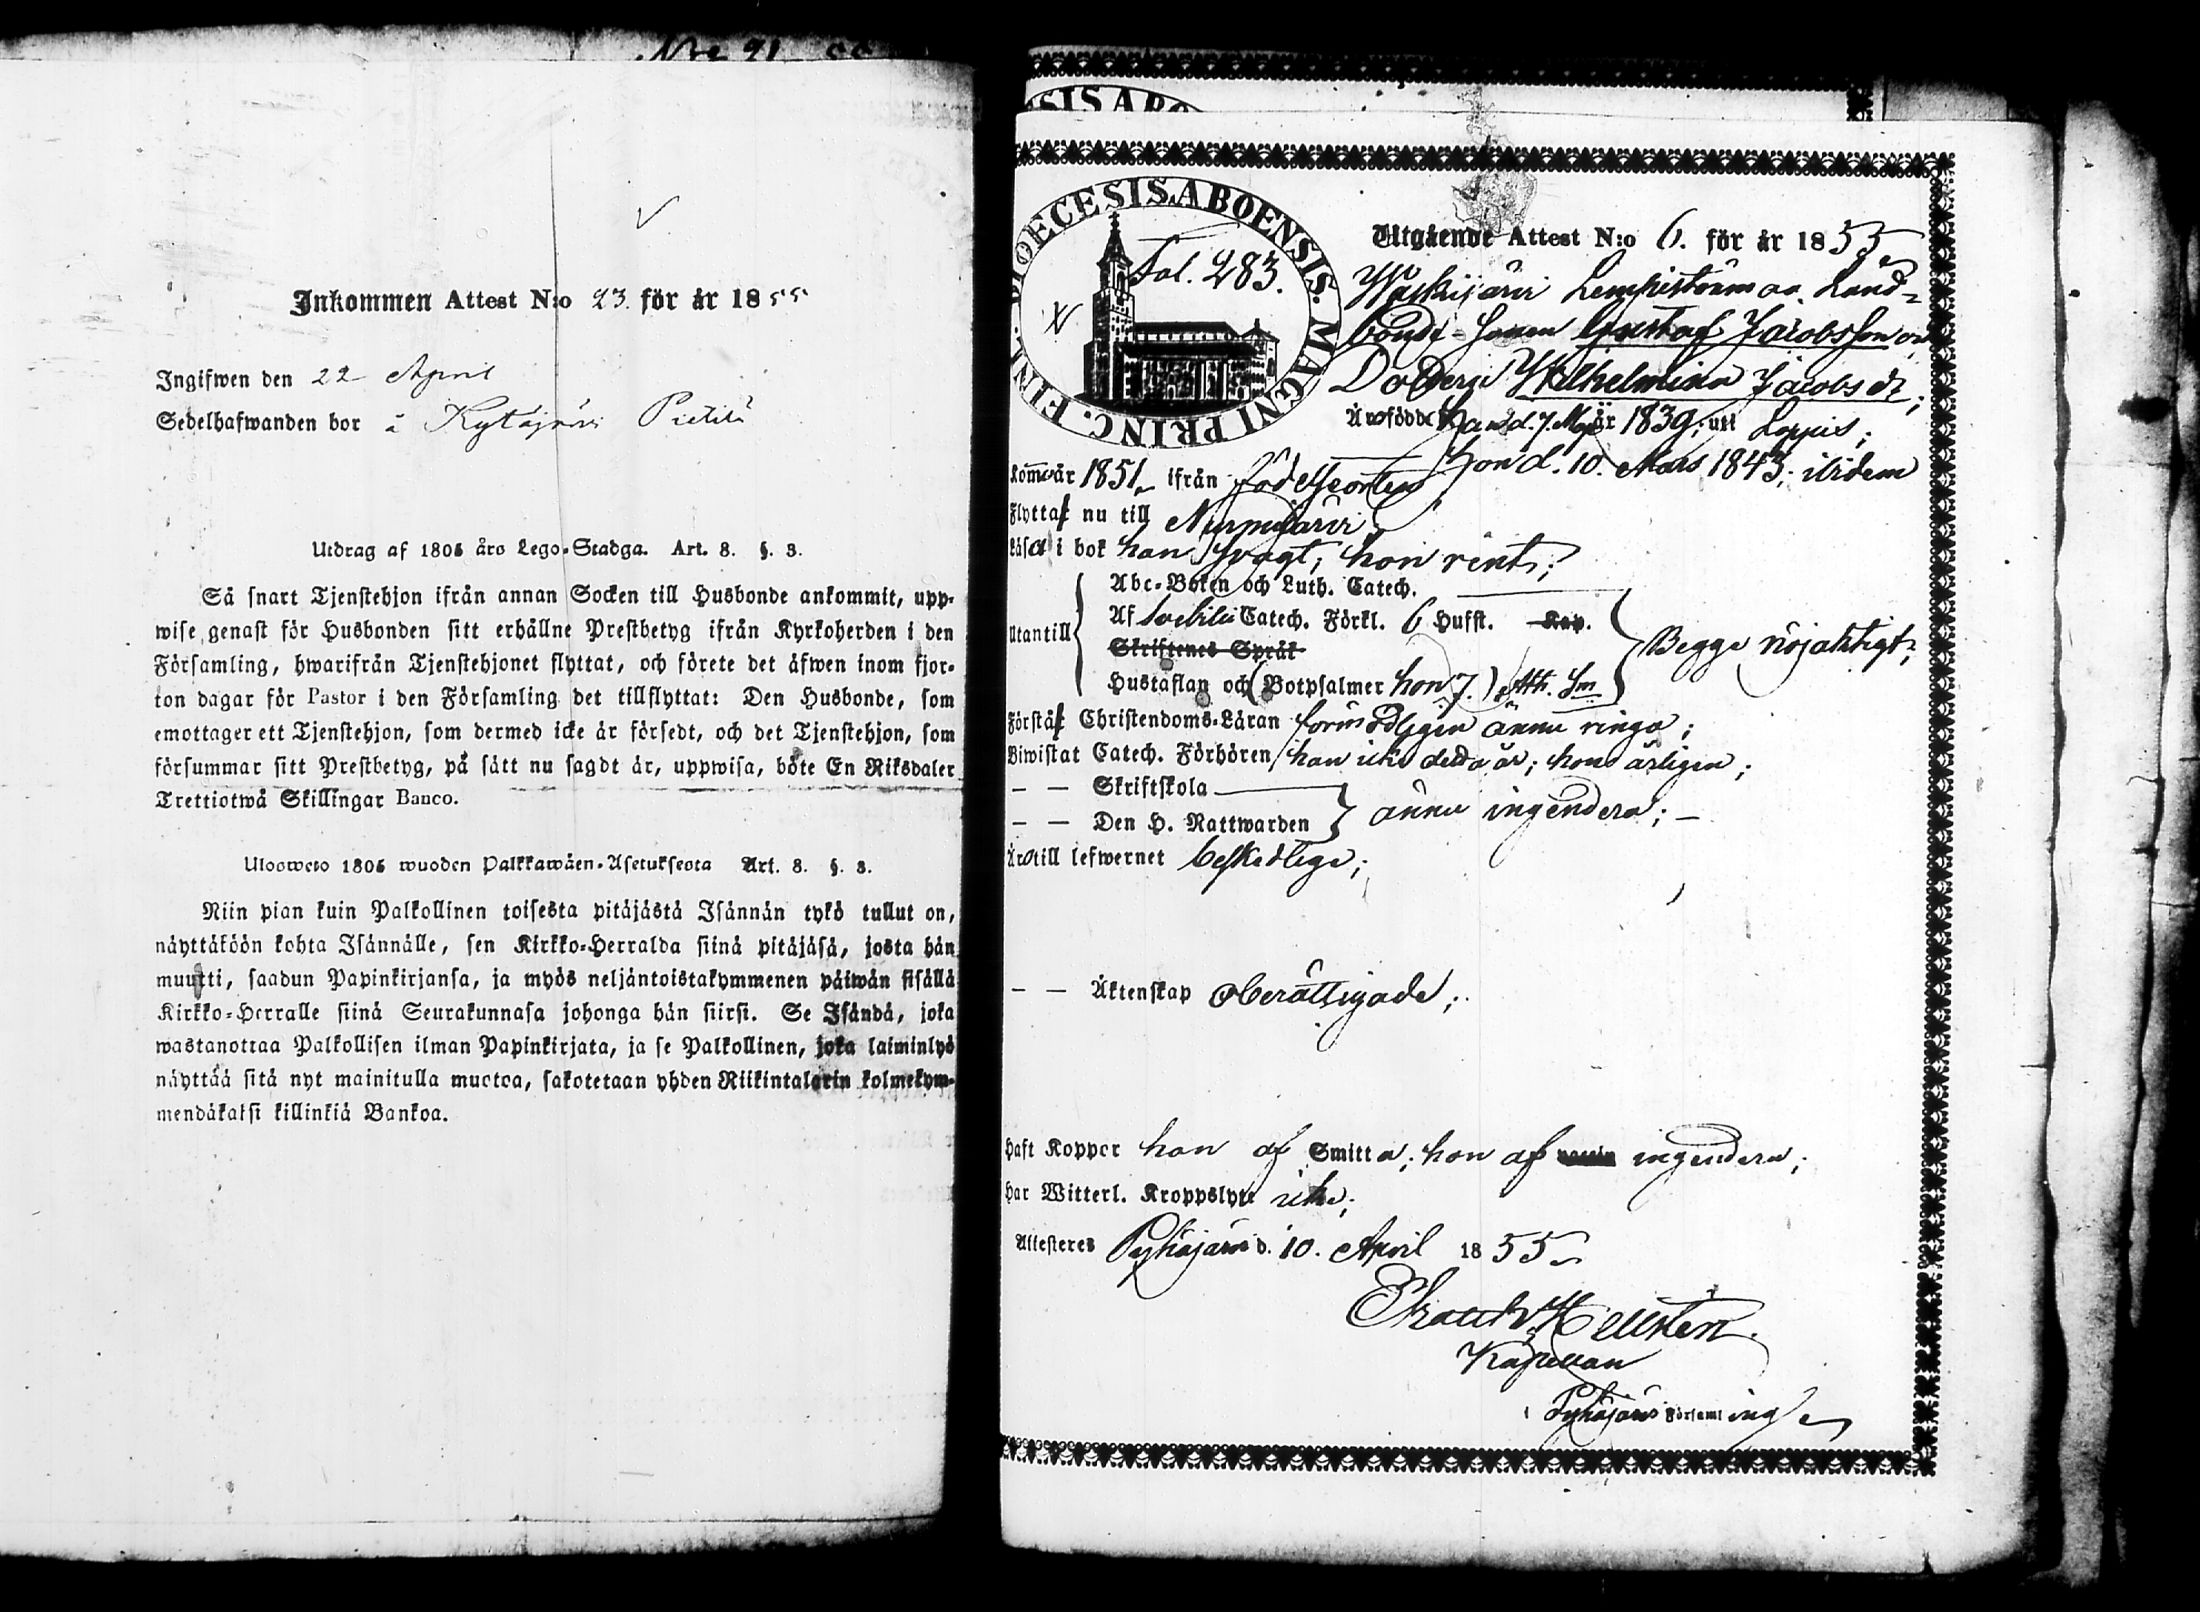 Inkommen Attest N:o 23. för år 1855
Ingifwen den 22 April
Sedelhafwanden bor å Kytäjärvi Pietilä
Utdrag af 1805 års Lego-Stadga. Art. 8. §. 3.
Så snart Tjenstehjon ifrån annan Socken till Husbonde ankommit, upp-
wise genast för Husbonden sitt erhållne Prestbetyg ifrån Kyrkoherden i den
Församling, hwarifrån Tjenstehjonet flyttat, och förete det äfwen inom fjor-
ton dagar för Pastor i den Församling det tillflyttat: Den Husbonde, som
emottager ett Tjenstehjon, som dermed icke är försedt, och det Tjenstehjon, som
försummar sitt Prestbetyg, på sätt nu sagdt är, uppwisa, böte En Riksdaler
Trettiotwå Skillingar Banco.
Ulosweto 1805 wuoden Palkkawäen-Asetuksesta Art. 8. §. 3.
Niin pian kuin Palkollinen toisesta pitäjästä Isännän tykö tullut on,
näyttäköön kohta Isännälle, sen Kirkko-Herralda siinä pitäjäsä, josta hän
muutti, saadun Papinkirjansa, ja myös neljäntoistakymmenen päiwän sisällä
Kirkko-Herralle siinä Seurakunnasa johonga hän siirsi. Se Isändä, joka
wastanottaa Palkollisen ilman Papinkirjata, ja se Palkollinen, joka laiminlyö
näyttää sitä nyt mainitulla muotoa, sakotetaan yhden Riikintalarin kolmekym-
mendäkaksi killinkiä Bankoa.
DIOECESIS ABOENSIS. MAGNI PRINC. FINL.
Fol. 283.
Utgående Attest N:o 6. för år 1855
Waskijärvi Land-
bonde-Sonen Gustaf Jacobsson och
Dottern Wilhelmina Jacobsdr,
Äro födde han d. 7 Maj år 1839, uti Loppis;
hon d. 10. Mars 1843, ibidem
Komne år 1851 ifrån födelseorten
Flytta nu till Nurmijärvi
Läsa i bok han svagt, hon rent;
Abc-Boken och Luth. Catech.
Utantill Af Svebilii Catech. Förkl. 6 Hufst. Kap. Begge nöjaktigt;
Skriftenes Språk
Hustaflan och (Botpsalmer hon 7.) Ath. Sm
Förstå Christendoms-Läran förmodligen ännu ringa;
Biwistat Catech. Förhören han icke detta år; hon årligen;
— — Skriftskola
— — Den H. Nattwarden ännu ingendera;
Äro till lefwernet beskedlige;
— — Äktenskap oberättigade;
Haft Koppor han af Smitta; hon af ingendera;
Har Witterl. Kroppslyte icke;
Attesteras Pyhäjärvi d. 10. April 1855
Hellstén.
Kapellan
i Pyhäjärvi Församling